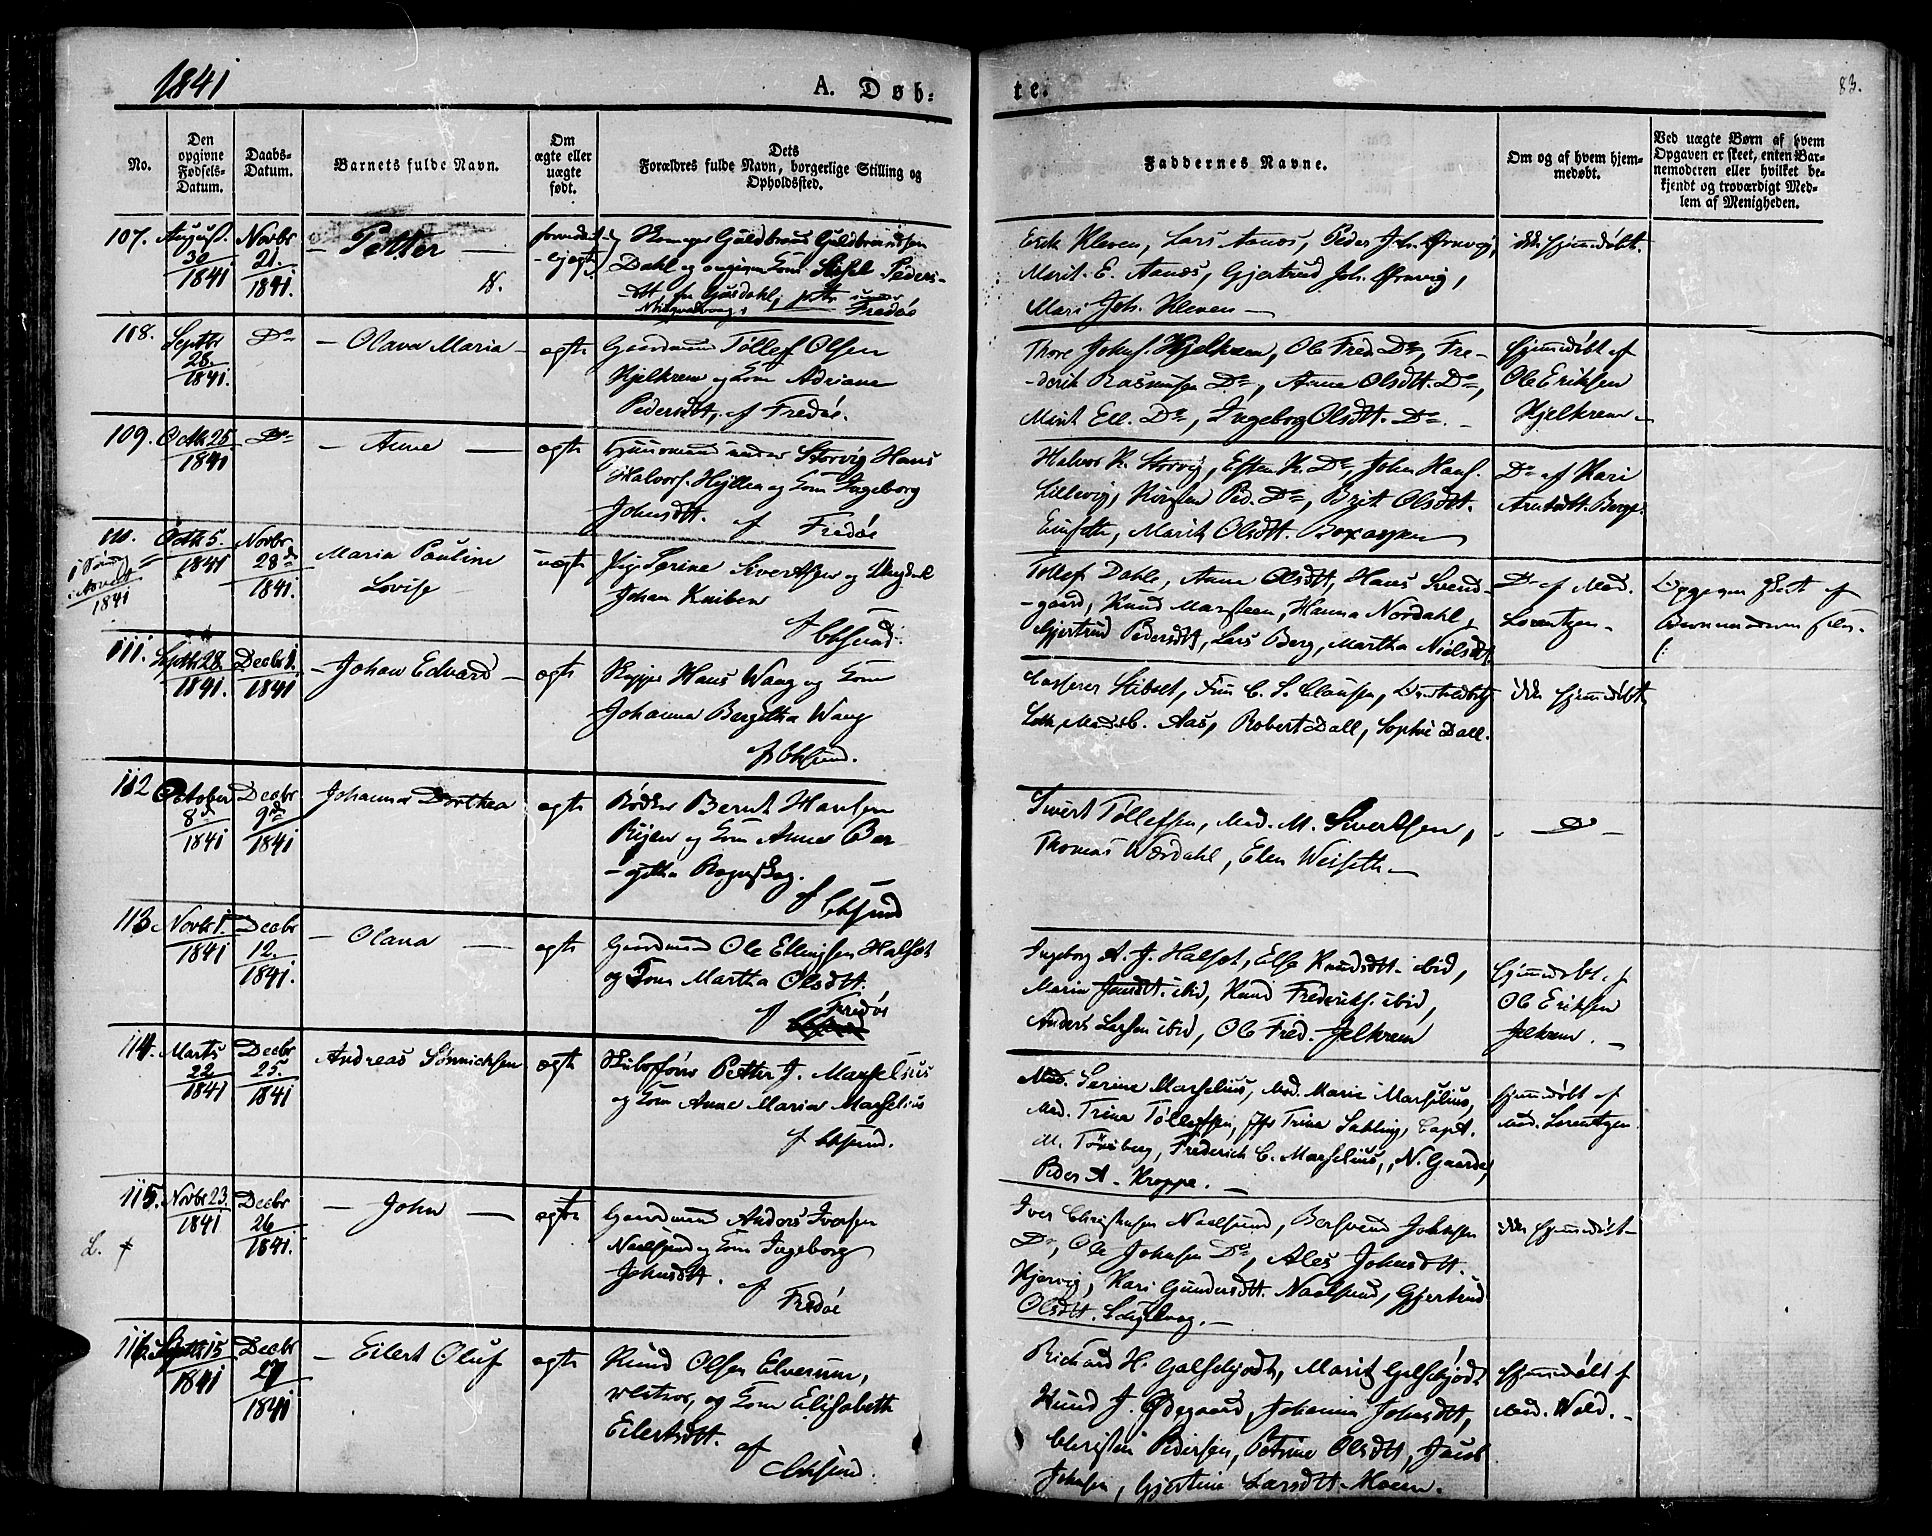 1841
A. Døb-
te.
83.
No.
Den opgivne Fødsels-Datum.
Daabs-Datum.
Barnets fulde Navn.
Om ægte eller uægte født.
Dets
Forældres fulde Navn, borgerlige Stilling og
Opholdssted.
Faddernes Navne.
Om og af hvem hjem-
medøbt.
Ved uægte Børn af hvem
Opgaven er skeet, enten Bar-
nemoderen eller hvilket be-
kjendt og troværdigt Med-
lem af Menigheden.
107. August 30 1841
Novbr 21. 1841.
Petter
Guldbrand Guldbrandsen
Dahl og Sissel Peders-
Fredøe
Erik Kleven, Lars Aanes, Peder Joh. Ørnvig,
Marit E. Aanes, Gjertrud Joh. Ørnvig,
Mari Joh. Kleven
ikke hjemmedøbt.
108. Septbr 28. 1841.
Do
Olava Maria
ægte
Gaardmand Tøllef Olsen
Hjelkrem og Kone Adriane
Pedersdtt. af Fredøe.
Thore Johns. Hjelkrem, Ole Fred. Do, Fre-
-derik Rasmusen Do, Anne Olsdtt. Do,
Marit Ell. Do, Ingeborg Olsdtt. Do.
Hjemmedøbt af
Ole Eriksen
Hjelkrem
109. Octbr 25 1841
Do
Anne
ægte
Huusmand under Storvig Hans
Halvors. og Kone Ingeborg
Johnsdtt. af Fredøe
Halvor K. Storvig, Esten K. Do, John Hans.
Lillevig, Ped. Do, Brit Olsdtt.
Marit Olsdtt.
Do af Kari
Arntsdtt. Berge.
110. Octbr 5. 1841
Novbr 28de 1841.
Maria Pauline
Lovise
uægte
Pige Serine Sivertsen og Ungkal
Johan Kniben
af Chsund
Tøllef Dahle, Anne Olsdtt, Hans Svend-
-gaard, Knud Marsteen, Hanna Nordahl,
Gjertrud Pedersdtt, Lars Berg, Martha Nielsdtt
Do af Mad.
Lorentzen
Opgaven skeet af
Barnemoderen
111. Septbr 28 1841.
Decbr 1. 1841
Johan Edvard
ægte
Hans Waag og Kone
Johanna Bergitha Waag
af Chsund.
Casserer Stibolt, C. S. Clausen,
Mads C. Aas, Robert Dall, Sophie Dall.
ikke hjemmedøbt
112 October 8de 1841
Decbr 9de 1841
Johanna Dorthea
ægte
Bødker Bernt Hansen
og Kone Anne Ber-
-githa
af Chsund
Sivert Tøllefsen, Mad. M. Sivertsen,
Thomas Værdahl, Elen Weiseth
Do
113. Novbr 1. 1841
Decbr 12. 1841.
Olava
ægte
Gaardmand Ole Ellingsen Halset
og Kone Martha Olsdtt.
af Fredøe
Ingeborg A. J. Halset, Else Knudsdtt. ibid,
Maria Jonsdtt. ibid, Knud Frederiks. ibid,
Anders Larsen ibid, Ole Fred. Jelkrem
Hjemmedøbt af
Ole Eriksen
Jelkrem.
114. Marts 22 1841
Decbr 25. 1841
Andreas Sønnichsen
ægte
Skibsfører Petter J. Marselius
og Kone Anne Maria Marselius
af Chsund.
Mad. Serine Marselius, Mad. Marie Marselius,
Mad. Trine Tøllefsen, Jfr Trine Sahling, Capt.
M. Tønsberg, Frederich C. Marselius, N. Gaarde,
Peder A. Kroppe.
Hjemmedøbt af
Mad. Lorentzen.
115. Novbr 23. 1841
Decbr 26 1841.
L.
John
ægte
Gaardmand Anders Iversen
Naalsund og Kone Ingeborg
Johnsdtt. af
Fredøe
Iver Christensen Naalsund, Bersvend Johnsen
Do, Ole Johnsen Do, Ales Johnsdtt.
Kjørvig, Kari Gundersdtt. Naalsund, Gjertrud
Olsdtt.
ikke hjemmedøbt
116. Septbr 15 1841
Decbr 27 1841
Eilert Oluf
ægte
Knud Olsen Elverum,
og Kone Elisabeth
Eilertsdtt. af
Chsund.
Richard H. Galseskjødt, Marit Galseskjødt
Knud J. Ødegaard, Johanna Johnsdtt,
Christin Pedersen, Petrine Olsdtt, Jacob
Johnsen, Gjertine Larsdtt. Moen.
Hjemmedøbt af
Mad. Wold.